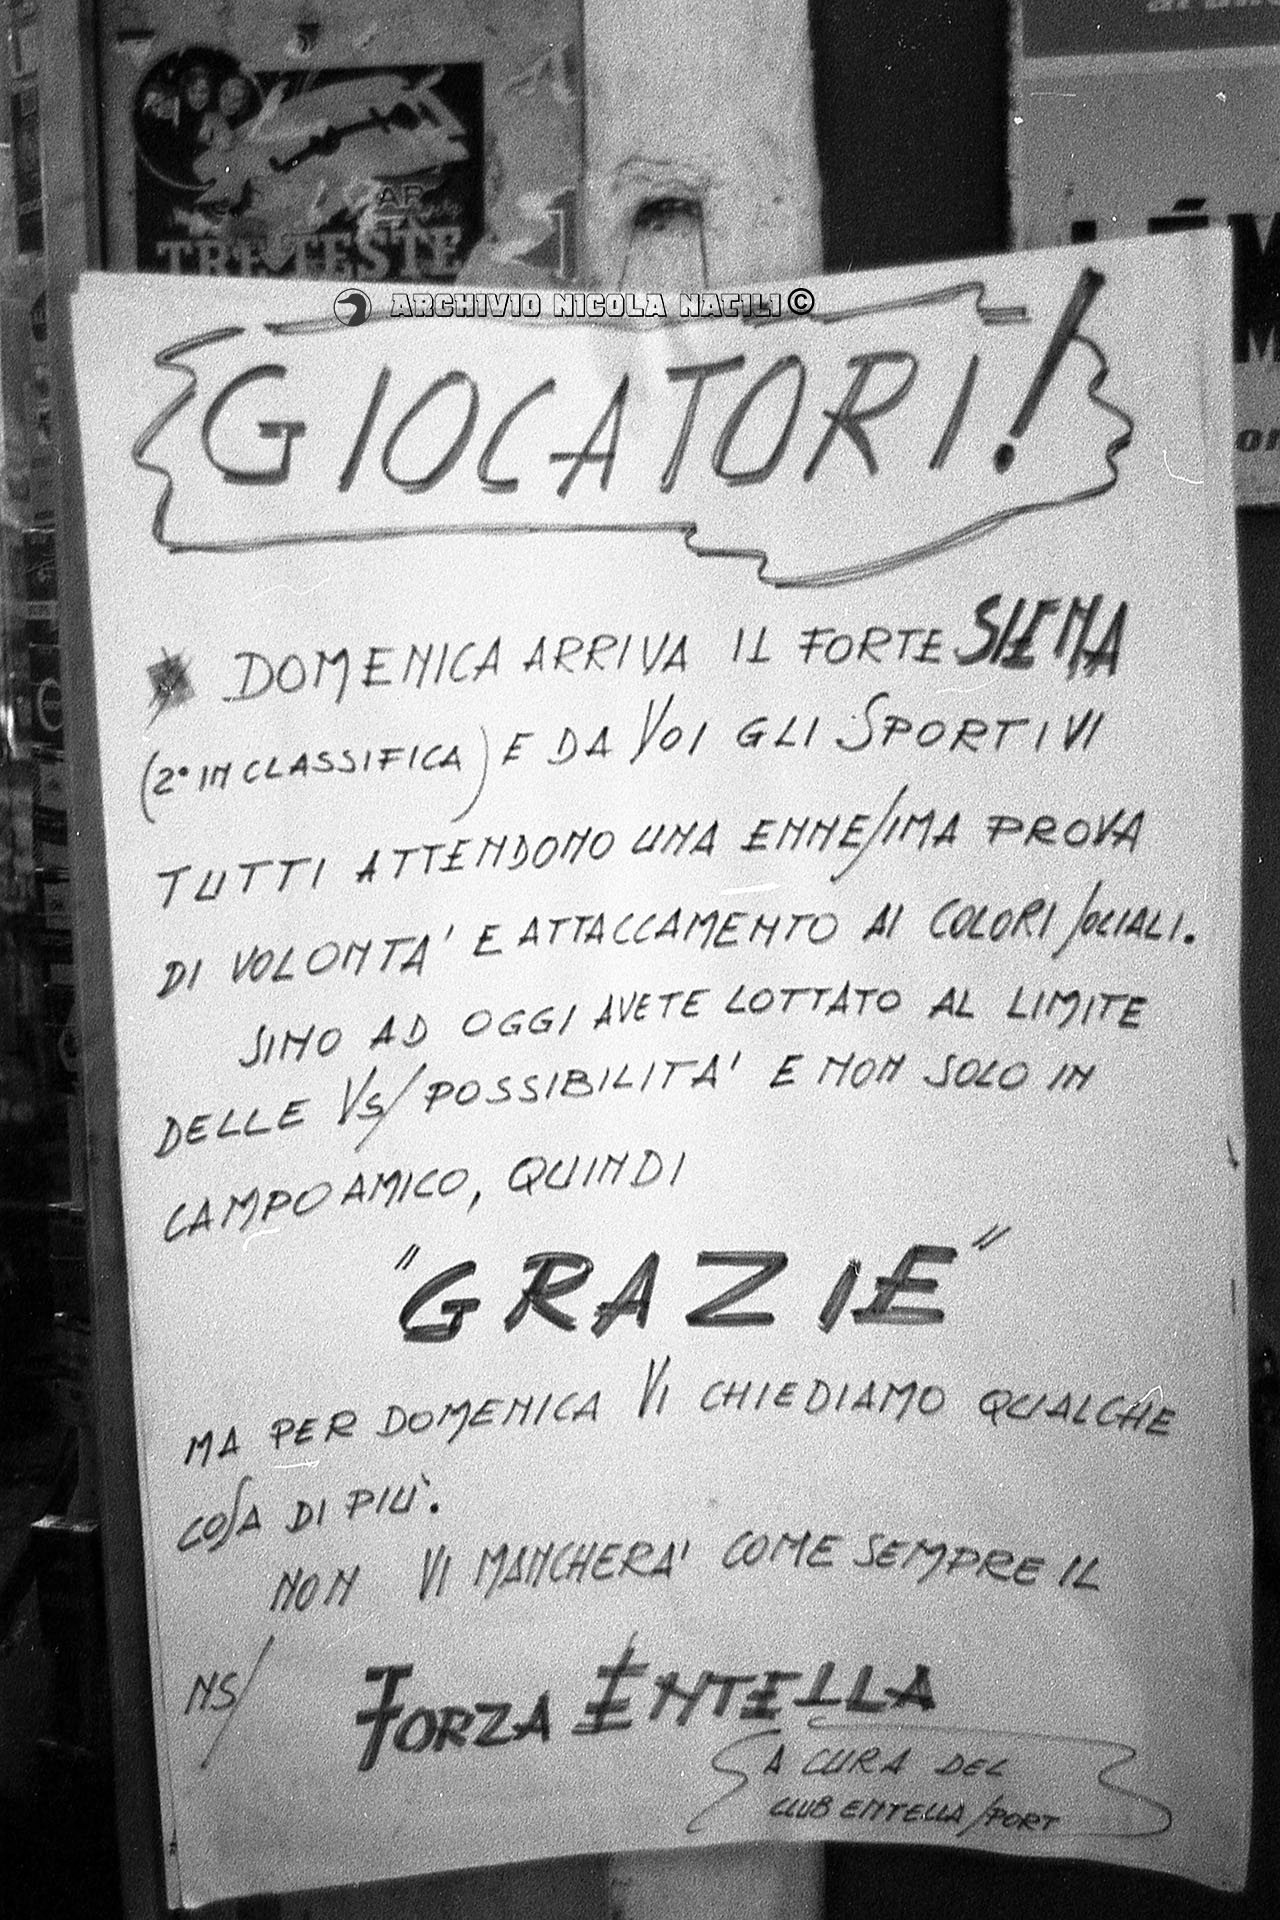 AR
TRE TESTE
ARCHIVIO NICOLA NATILI ©
GIOCATORI!
DOMENICA ARRIVA IL FORTE SIENA
(2° IN CLASSIFICA) E DA VOI GLI SPORTIVI
TUTTI ATTENDONO UNA ENNESIMA PROVA
DI VOLONTA' E ATTACCAMENTO AI COLORI SOCIALI.
SINO AD OGGI AVETE LOTTATO AL LIMITE
DELLE VS/ POSSIBILITA' E NON SOLO IN
CAMPO AMICO, QUINDI
"GRAZIE"
MA PER DOMENICA VI CHIEDIAMO QUALCHE
COSA DI PIÙ.
NON VI MANCHERA' COME SEMPRE IL
NS/ FORZA ENTELLA
A CURA DEL
CLUB ENTELLA SPORT